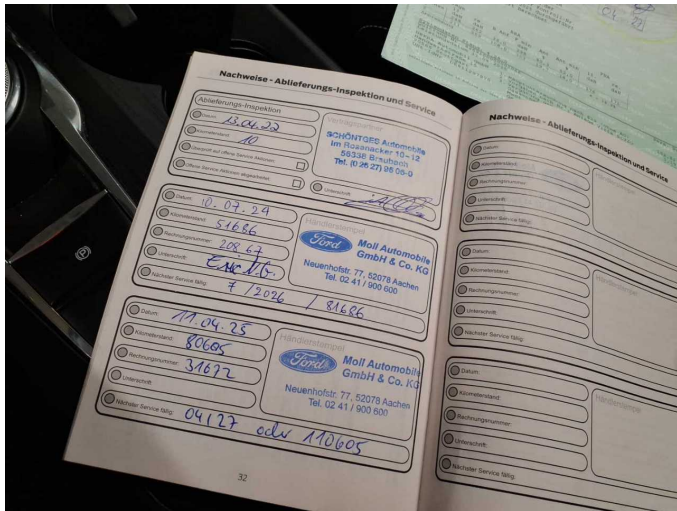 Nachweise - Ablieferungs-Inspektion und Service
Ablieferungs-Inspektion
Datum: 13.04.22
Kilometerstand: 10
Überprüft auf offene Service-Aktionen
Offene Service-Aktionen abgearbeitet
Vertragspartner
SCHÖNTGES Automobile
Im Rosenacker 10-12
56338 Braubach
Tel. (0 26 27) 96 06-0
Unterschrift:
Datum: 10.07.24
Kilometerstand: 51686
Rechnungsnummer: 20867
Unterschrift:
Nächster Service fällig: 7/2026 / 81686
Händlerstempel
Ford
Moll Automobile
GmbH & Co. KG
Neuenhofstr. 77, 52078 Aachen
Tel. 02 41 / 900 600
Datum: 11.04.25
Kilometerstand: 80605
Rechnungsnummer: 31672
Unterschrift:
Nächster Service fällig: 04/27 oder 110605
Händlerstempel
Ford
Moll Automobile
GmbH & Co. KG
Neuenhofstr. 77, 52078 Aachen
Tel. 02 41 / 900 600
32
Nachweise - Ablieferungs-Inspektion und Service
Datum:
Kilometerstand:
Rechnungsnummer:
Unterschrift:
Nächster Service fällig:
Datum:
Kilometerstand:
Rechnungsnummer:
Unterschrift:
Nächster Service fällig:
Datum:
Kilometerstand:
Rechnungsnummer:
Unterschrift:
Nächster Service fällig:
Händlerstempel